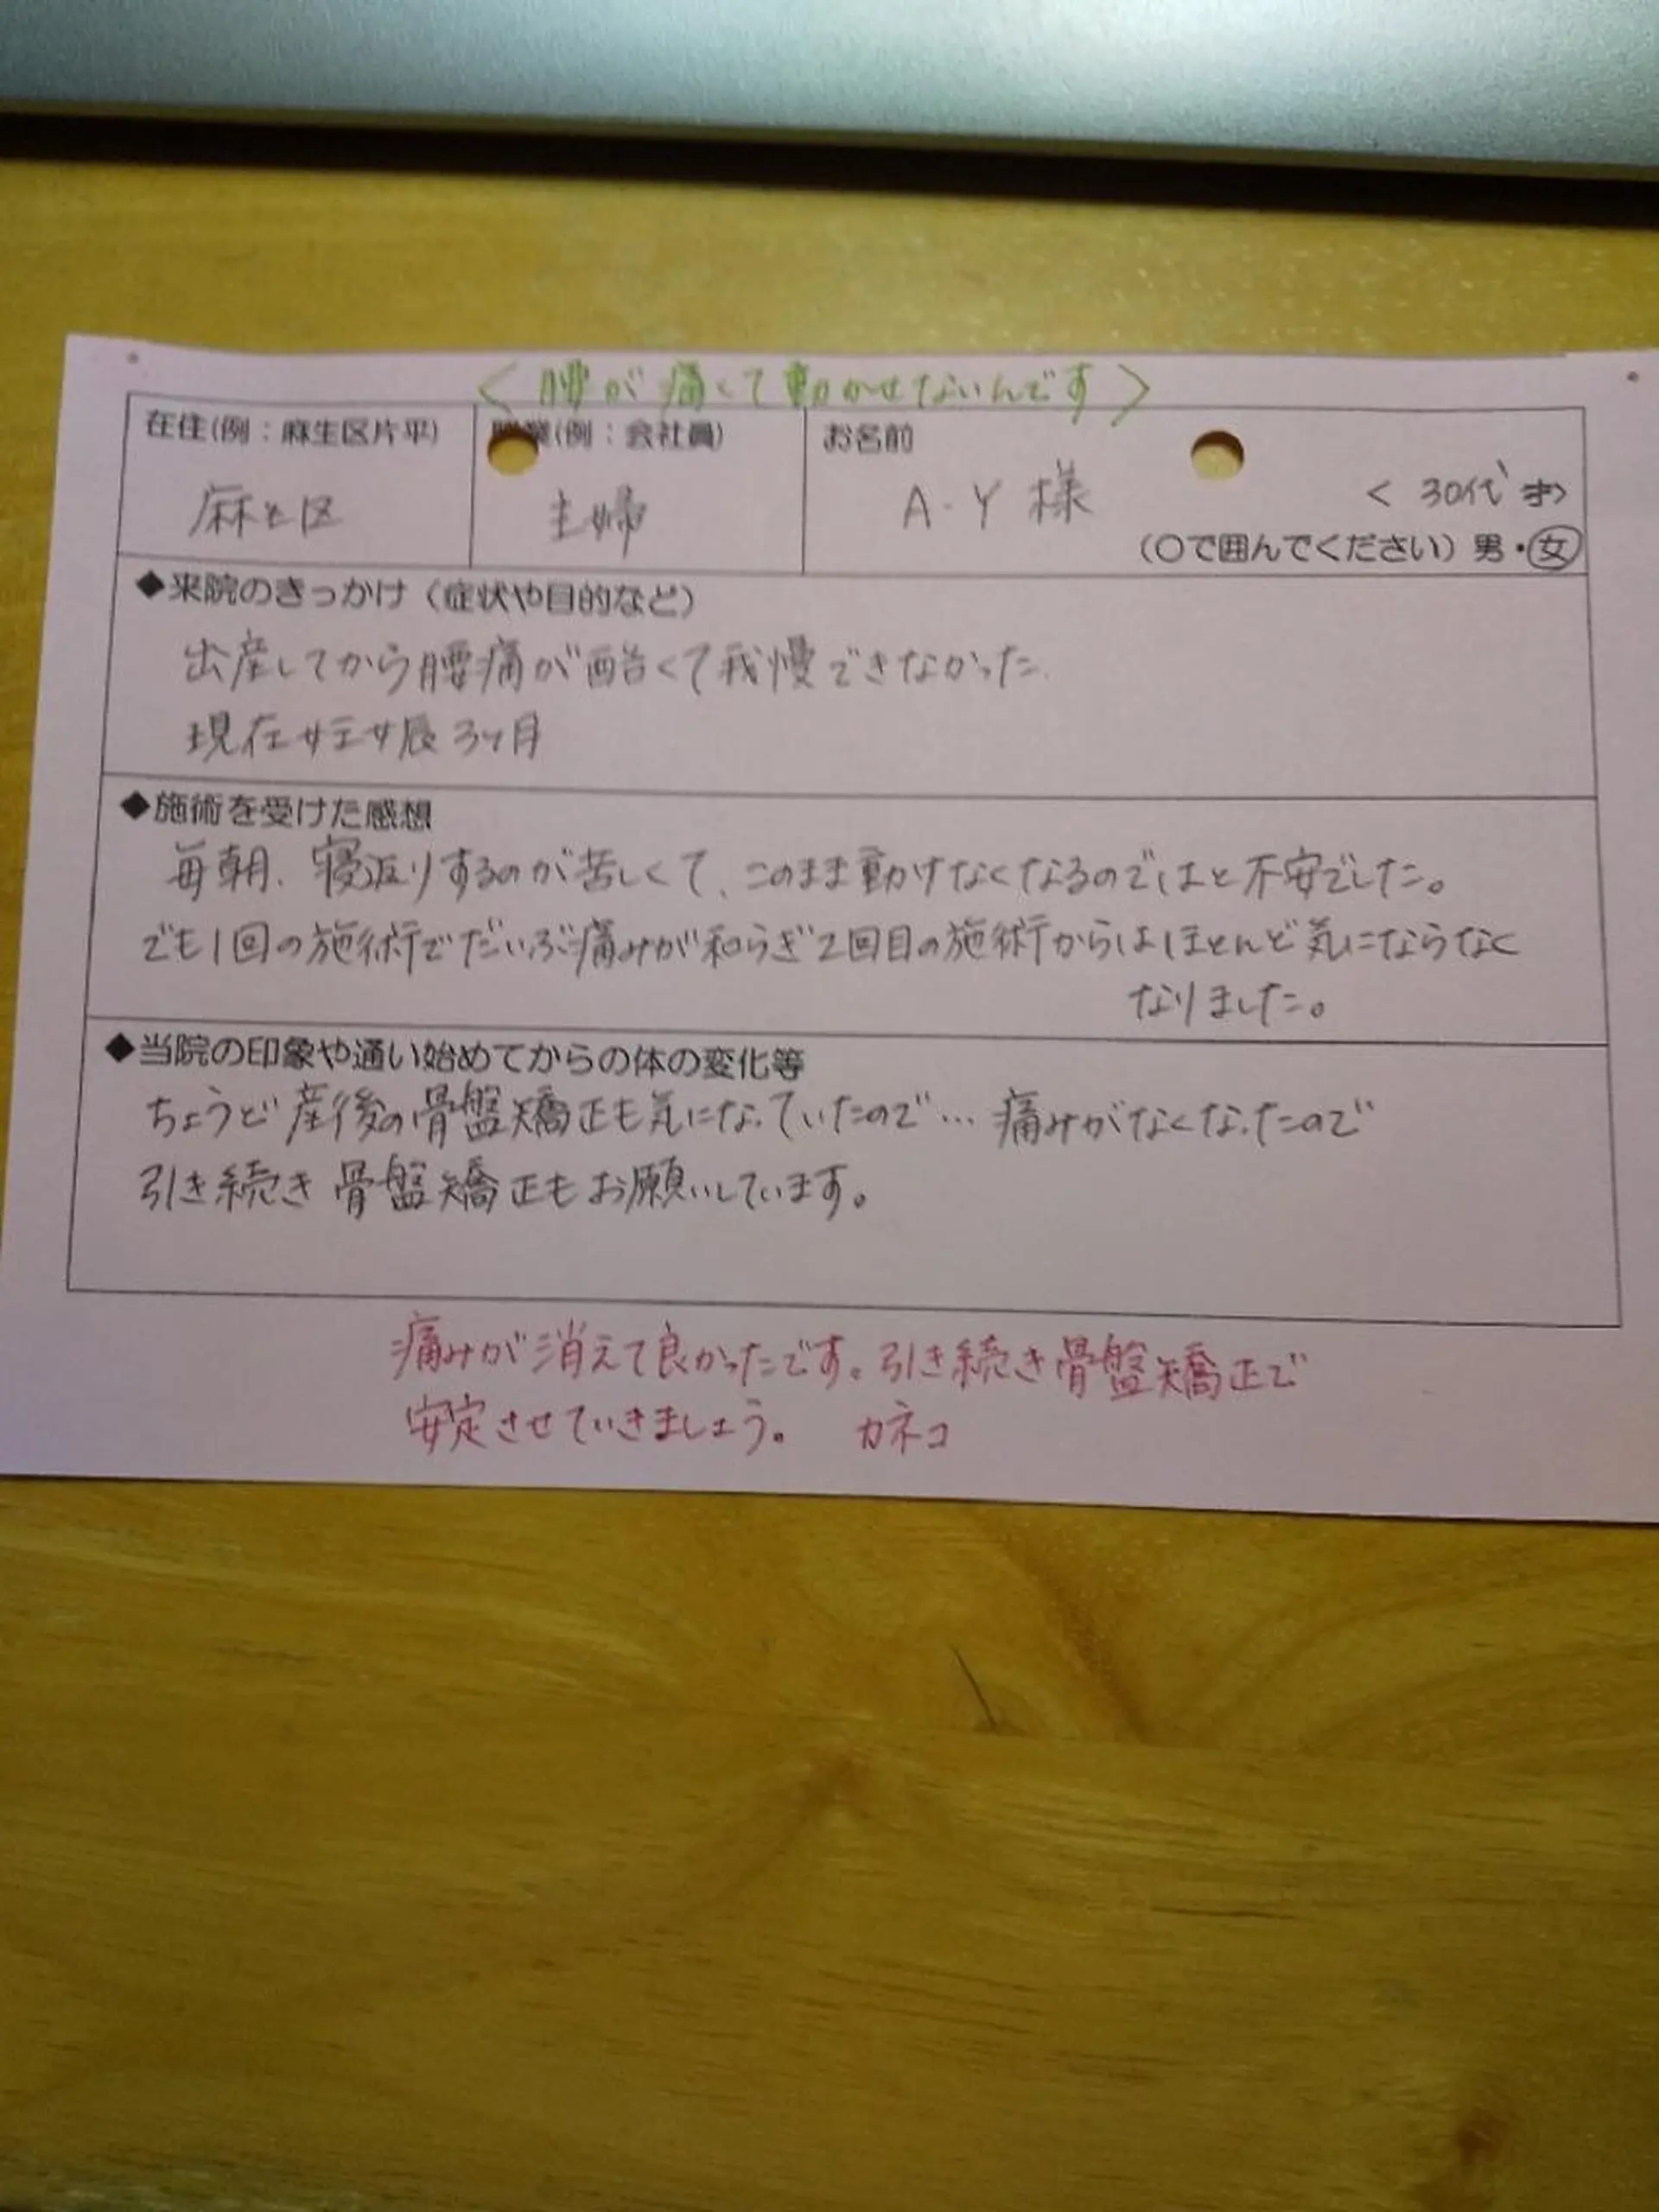 ＜腰が痛くて動かせないんです＞
在住(例：麻生区片平)
業(例：会社員)
お名前
麻生区
主婦
A・Y 様
＜30代
(〇で囲んでください) 男・女
◆来院のきっかけ（症状や目的など）
出産してから腰痛が酷くて我慢できなかった.
現在妊娠3ヶ月
◆施術を受けた感想
毎朝、寝返りするのが苦しくて、このまま動けなくなるのではと不安でした。
でも1回の施術でだいぶ痛みが和らぎ2回目の施術からはほとんど気にならなく
なりました。
◆当院の印象や通い始めてからの体の変化等
ちょうど産後の骨盤矯正も気になっていたので… 痛みがなくなったので
引き続き骨盤矯正もお願いしています。
痛みが消えて良かったです。引き続き骨盤矯正で
安定させていきましょう。 カネコ